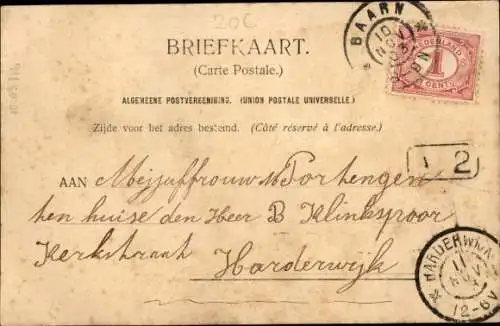 20C
BAARN
10
NOV
03
NEDERLAND
1
CENT
BRIEFKAART.
(Carte Postale.)
ALGEMEENE POSTVEREENIGING. (UNION POSTALE UNIVERSELLE.)
Zijde voor het adres bestemd. (Côté réservé à l'adresse.)
2
AAN Mejuffrouw
ten huise den Heer B Klinkspoor
Kerkstraat
Harderwijk
HARDERWIJK
11
NOV
12-6N